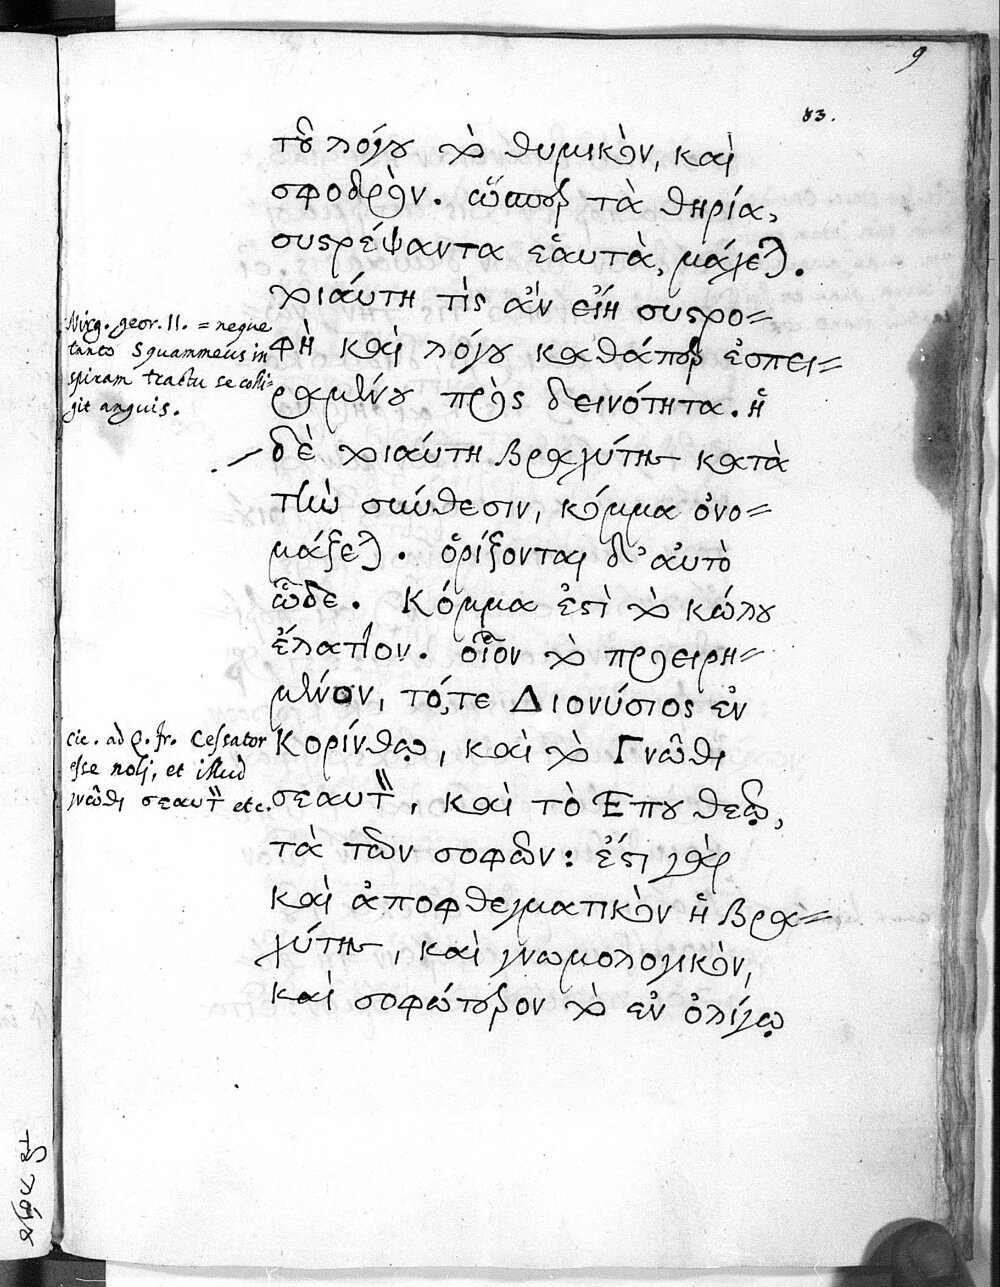 9
83.
τοῦ λόγου τὸ θυμικὸν, καὶ
σφοδρὸν. ὥσπερ τὰ θηρία,
συστρέψαντα ἑαυτὰ, μάχεται.
τοιαύτη τὶς ἂν εἴη συστρο=
φὴ καὶ λόγου καθάπερ ἐσπει=
ραμένου πρὸς δεινότητα. ἡ
δὲ τοιαύτη βραχύτης κατὰ
τὴν σύνθεσιν, κόμμα ὀνο=
μάζεται. ὁρίζονται δ' αὐτὸ
ὧδε. Κόμμα ἐστὶ τὸ κώλου
ἔλαττον. οἷον τὸ προειρη=
μένον, τό, τε Διονύσιος ἐν
Κορίνθῳ, καὶ τὸ Γνῶθι
σεαυτὸν, καὶ τὸ Ἕπου θεῷ,
τὰ τῶν σοφῶν: ἔστι γὰρ
καὶ ἀποφθεγματικὸν ἡ βρα=
χύτης, καὶ γνωμολογικὸν,
καὶ σοφώτερον τὸ ἐν ὀλίγῳ
Virg. geor. II. = neque
tanto squammeus in
spiram tractu se colli=
git anguis.
cic. ad Q. fr. Cessator
esse noli, et illud
γνῶθι σεαυτὸν etc.